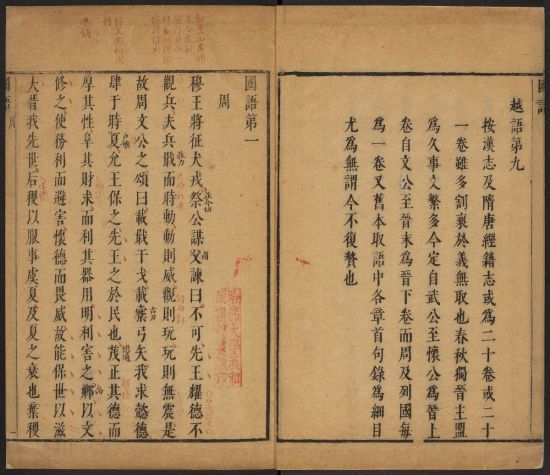 國語
越語第九
按漢志及隋唐經籍志或為二十卷或二十
一卷雖多割裂於義無取也春秋獨晉主盟
為久事文繁多今定自武公至懷公為晉上
卷自文公至晉末為晉下卷而周及列國每
為一卷又舊本取語中各章首句錄為細目
尤為無謂今不復贅也
國語第一
周
穆王將征犬戎祭公謀父諫曰不可先王耀德不
觀兵夫兵戢而時動動則威觀則玩玩則無震是
故周文公之頌曰載戢干戈載櫜弓矢我求懿德
肆于時夏允王保之先王之於民也茂正其德而
厚其性阜其財求而利其器用明利害之鄉以文
修之使務利而避害懷德而畏威故能保世以滋
大昔我先世后稷以服事虞夏及夏之衰也棄稷
國語 周